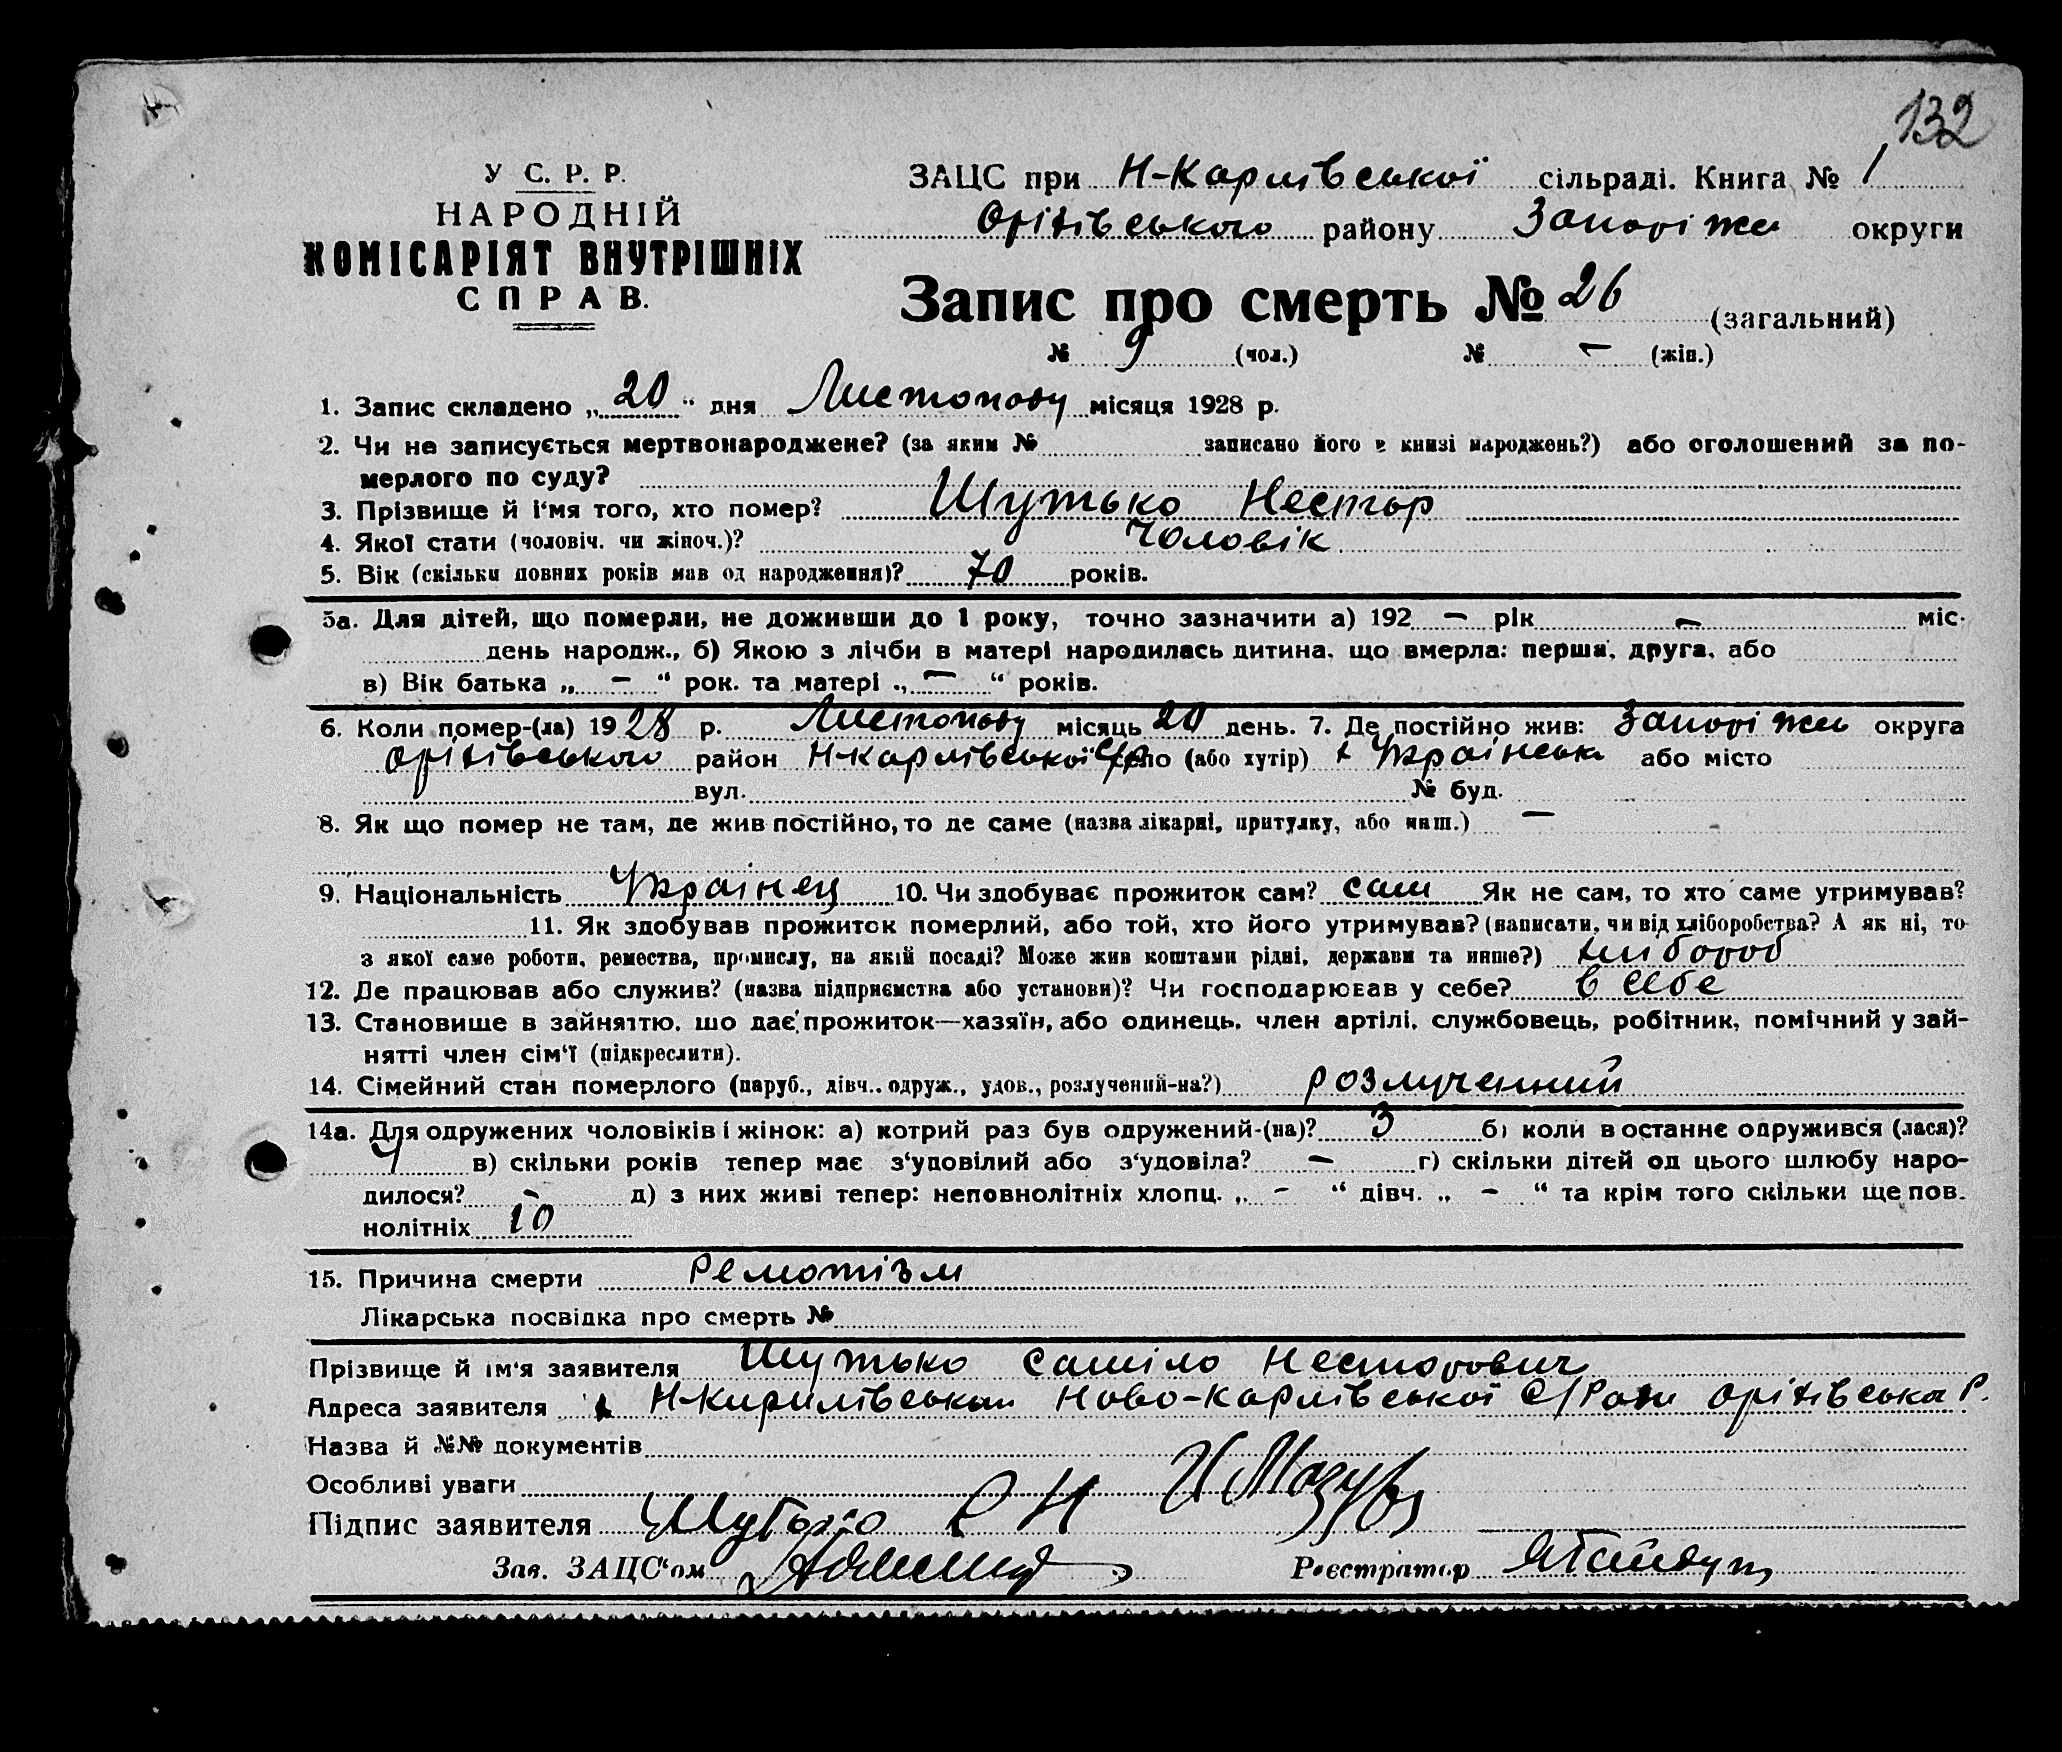 132
У С. Р. Р.
НАРОДНІЙ
КОМІСАРІЯТ ВНУТРІШНІХ
СПРАВ.
ЗАЦС при Н-Карлівської сільраді. Книга № 1
Оріхівського району Запоріжж округи
Запис про смерть № 26 (загальний)
№ 9 (чол.) № – (жін.)
1. Запис складено „20“ дня Листопаду місяця 1928 р.
2. Чи не записується мертвонароджене? (за яким № записано його в книзі народжень?) або оголошений за по-
мерлого по суду?
3. Прізвище й і‘мя того, хто помер? Шутько Нестор
4. Якої стати (чоловіч. чи жіноч.)? Чоловік
5. Вік (скільки повних років мав од народження)? 70 років.
5а. Для дітей, що померли, не доживши до 1 року, точно зазначити а) 192 – рік – міс.
день народж., б) Якою з лічби в матері народилась дитина, що вмерла: перша, друга, або
в) Вік батька „ – “ рок. та матері „ – “ років.
6. Коли помер-(ла) 1928 р. Листопаду місяць 20 день. 7. Де постійно жив: Запоріжж округа
Оріхівського район Н-Карлівської с/р село (або хутір) х Українськ або місто
вул. № буд.
8. Як що помер не там, де жив постійно, то де саме (назва лікарні, притулку, або инш.) –
9. Національність Українец 10. Чи здобуває прожиток сам? сам Як не сам, то хто саме утримував?
11. Як здобував прожиток померлий, або той, хто його утримував? (написати, чи від хліборобства? А як ні, то
з якої саме роботи, ремества, промислу, на якій посаді? Може жив коштами рідні, держави та инше?) хлибороб
12. Де працював або служив? (назва підприємства або установи)? Чи господарював у себе? в себе
13. Становище в зайняттю, що дає прожиток—хазяїн, або одинець, член артілі, службовець, робітник, помічний у зай-
нятті член сім‘ї (підкреслити).
14. Сімейний стан померлого (паруб., дівч., одруж., удов., розлучений-на?) розлученний
14а. Для одружених чоловіків і жінок: а) котрий раз був одружений-(на)? 3 б) коли востаннє одружився (лася)?
4 в) скільки років тепер має з‘удовілий або з‘удовіла? – г) скільки дітей од цього шлюбу наро-
дилося? – д) з них живі тепер: неповнолітніх хлопц. „ – “ дівч. „ – “ та крім того скільки ще пов.
нолітніх 10
15. Причина смерти Ремотізм
Лікарська посвідка про смерть №
Прізвище й ім‘я заявителя Шутько Саміло Несторович
Адреса заявителя х Н-Кирилівськ Ново-Карлівської С/Ради Оріхівська Р.
Назва й №№ документів
Особливі уваги
Підпис заявителя Шутько С Н
Зав. ЗАЦС‘ом Реєстратор